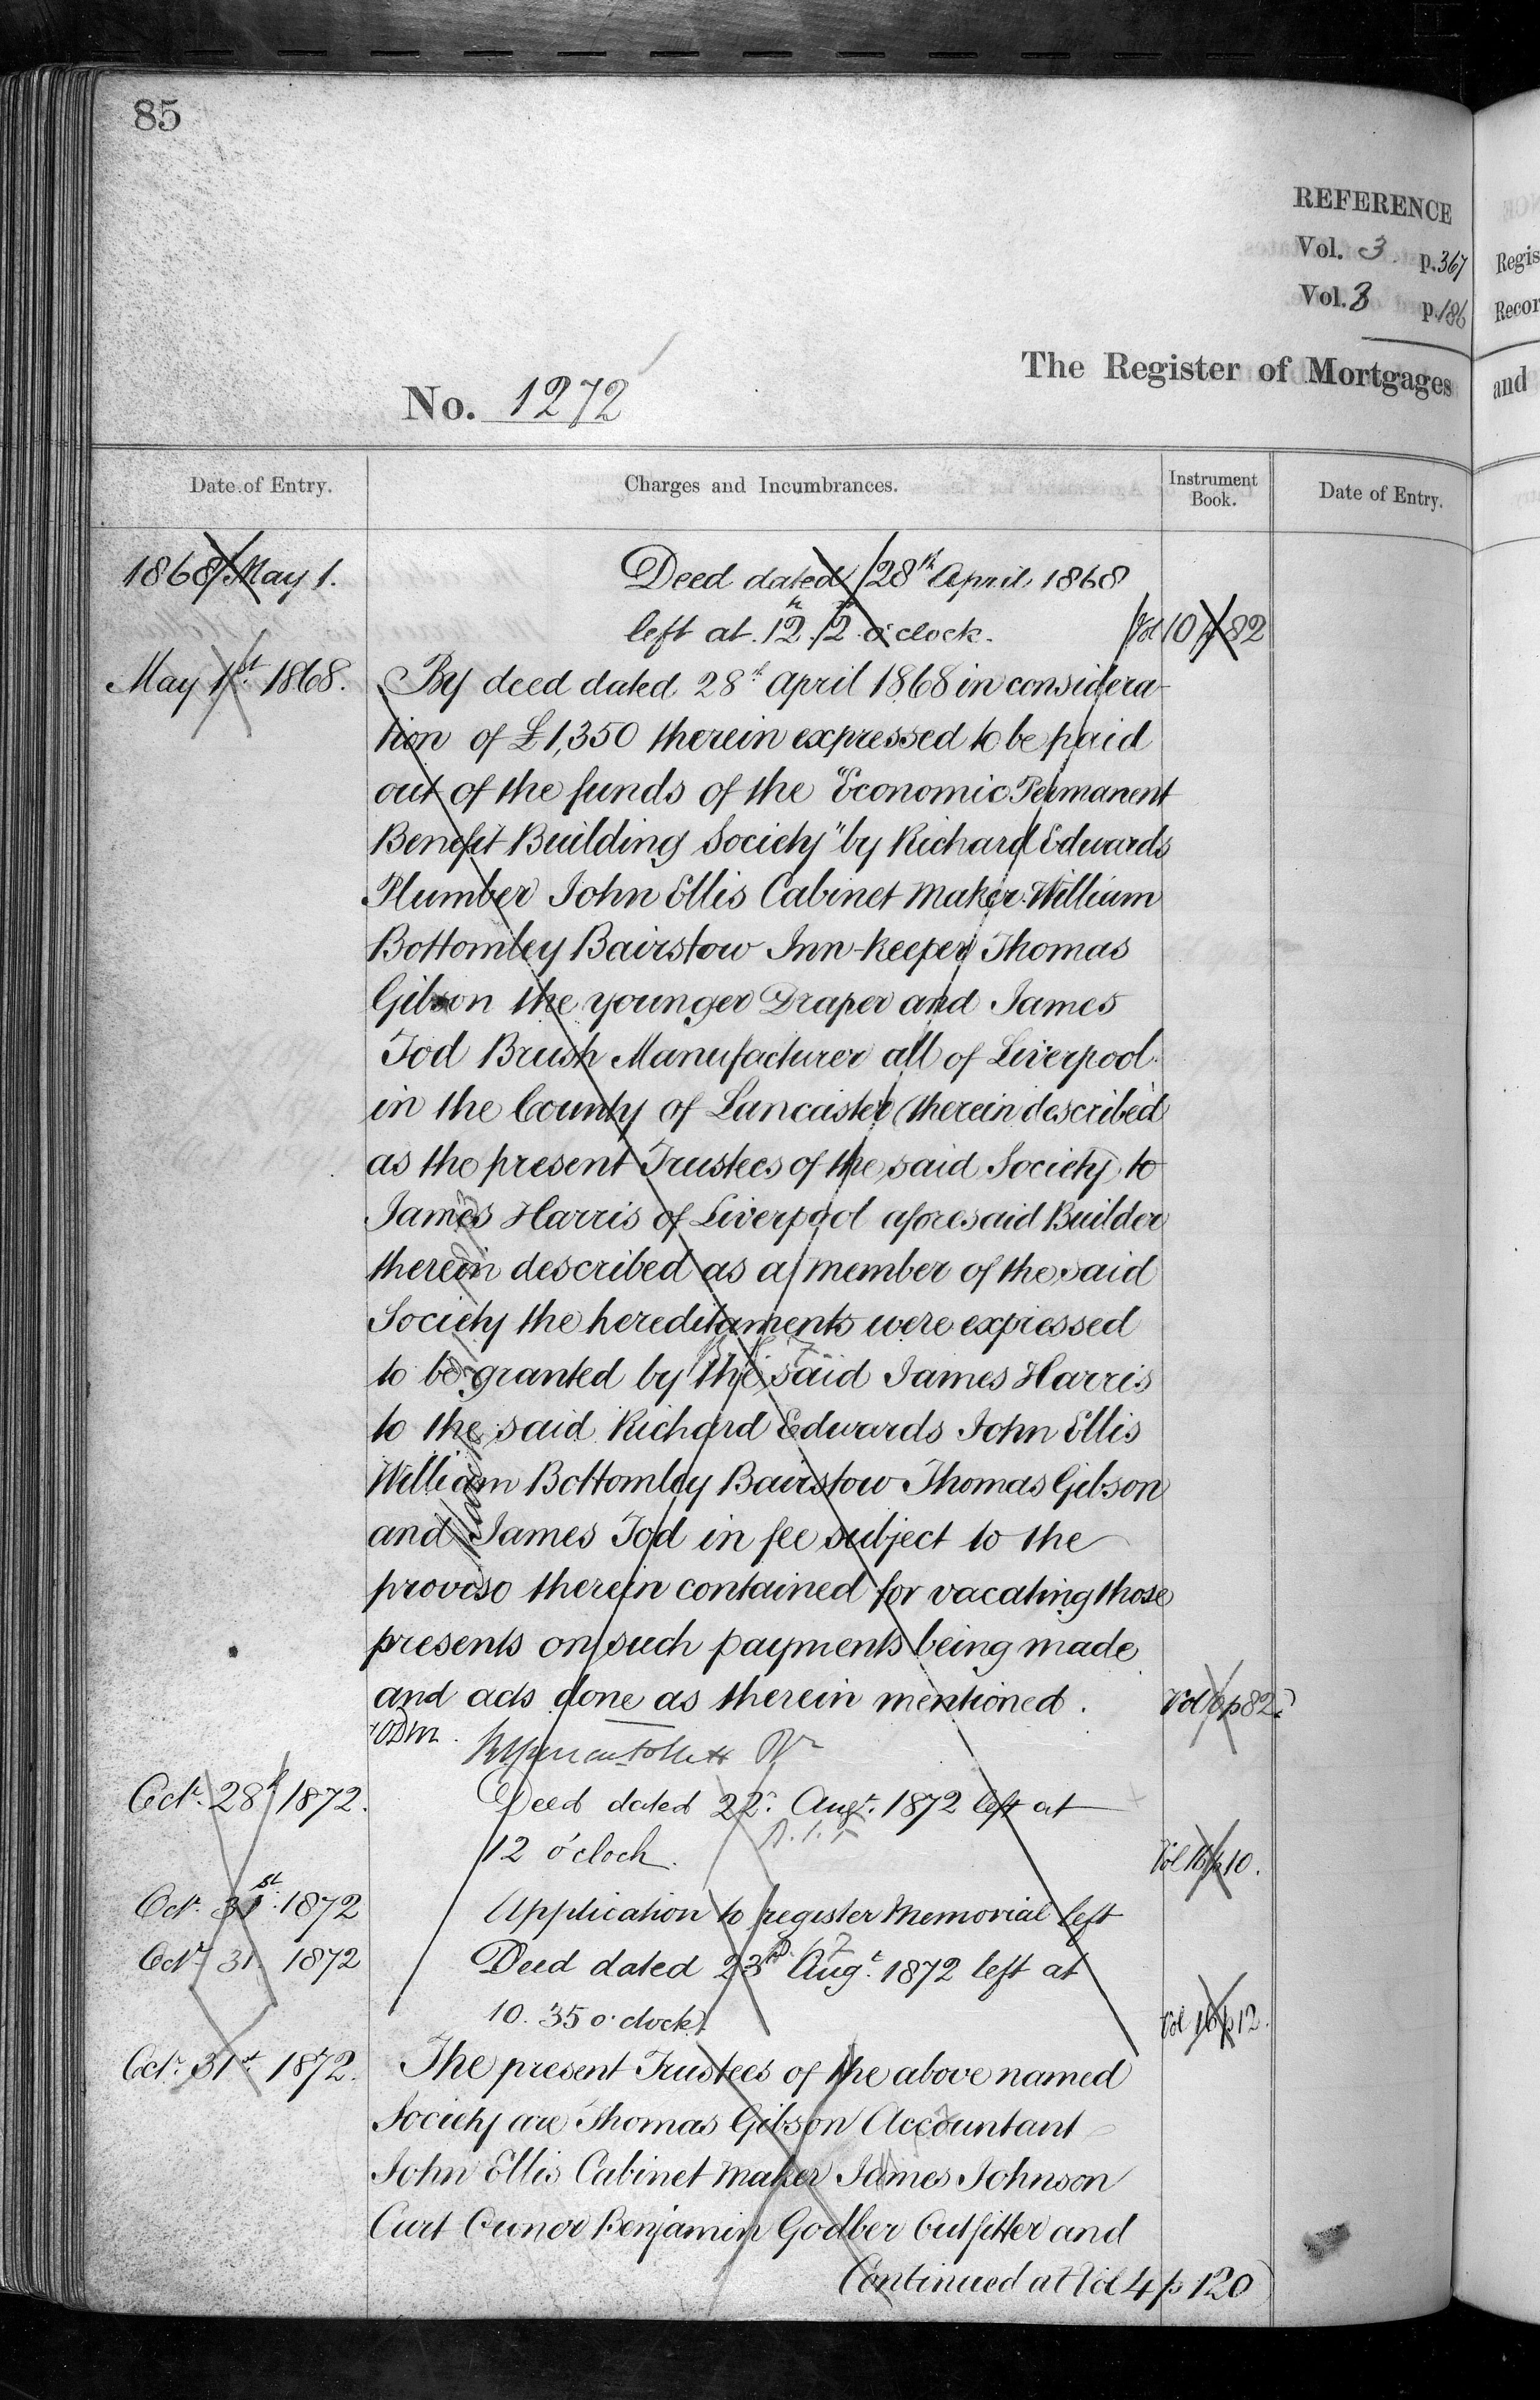 85
REFERENCE
Vol. 3 p. 367
Vol. 3 p. 186
The Register of Mortgages
No. 1272
Date of Entry. Charges and Incumbrances. Instrument Book. Date of Entry.
1868 May 1. Deed dated 28th April 1868
left at 12.12 o'clock. Vol 10 p 82
May 1st 1868. By deed dated 28th April 1868 in considera-
tion of £1,350 therein expressed to be paid
out of the funds of the "Economic Permanent
Benefit Building Society" by Richard Edwards
Plumber John Ellis Cabinet Maker William
Bottomley Bairstow Inn-keeper Thomas
Gibson the younger Draper and James
Tod Brush Manufacturer all of Liverpool
in the County of Lancaster (therein described
as the present Trustees of the said Society) to
James Harris of Liverpool aforesaid Builder
therein described as a member of the said
Society the hereditaments were expressed
to be granted by the said James Harris
to the said Richard Edwards John Ellis
William Bottomley Bairstow Thomas Gibson
and James Tod in fee subject to the
proviso therein contained for vacating those
presents on such payments being made
and acts done as therein mentioned. Vol 10 p 82.
Oct. 28th 1872. Deed dated 22d. Augt. 1872 left at
12 o'clock. Vol 16 p 10.
Oct. 31st. 1872 Application to register Memorial left
Oct. 31 1872 Deed dated 23rd Augt. 1872 left at
10.35 o'clock. Vol 16 p 12.
Oct. 31st. 1872. The present Trustees of the above named
Society are Thomas Gibson Accountant
John Ellis Cabinet Maker James Johnson
Cart Owner Benjamin Godber Outfitter and
Continued at Vol 4 p 120
Regis
Recor
and